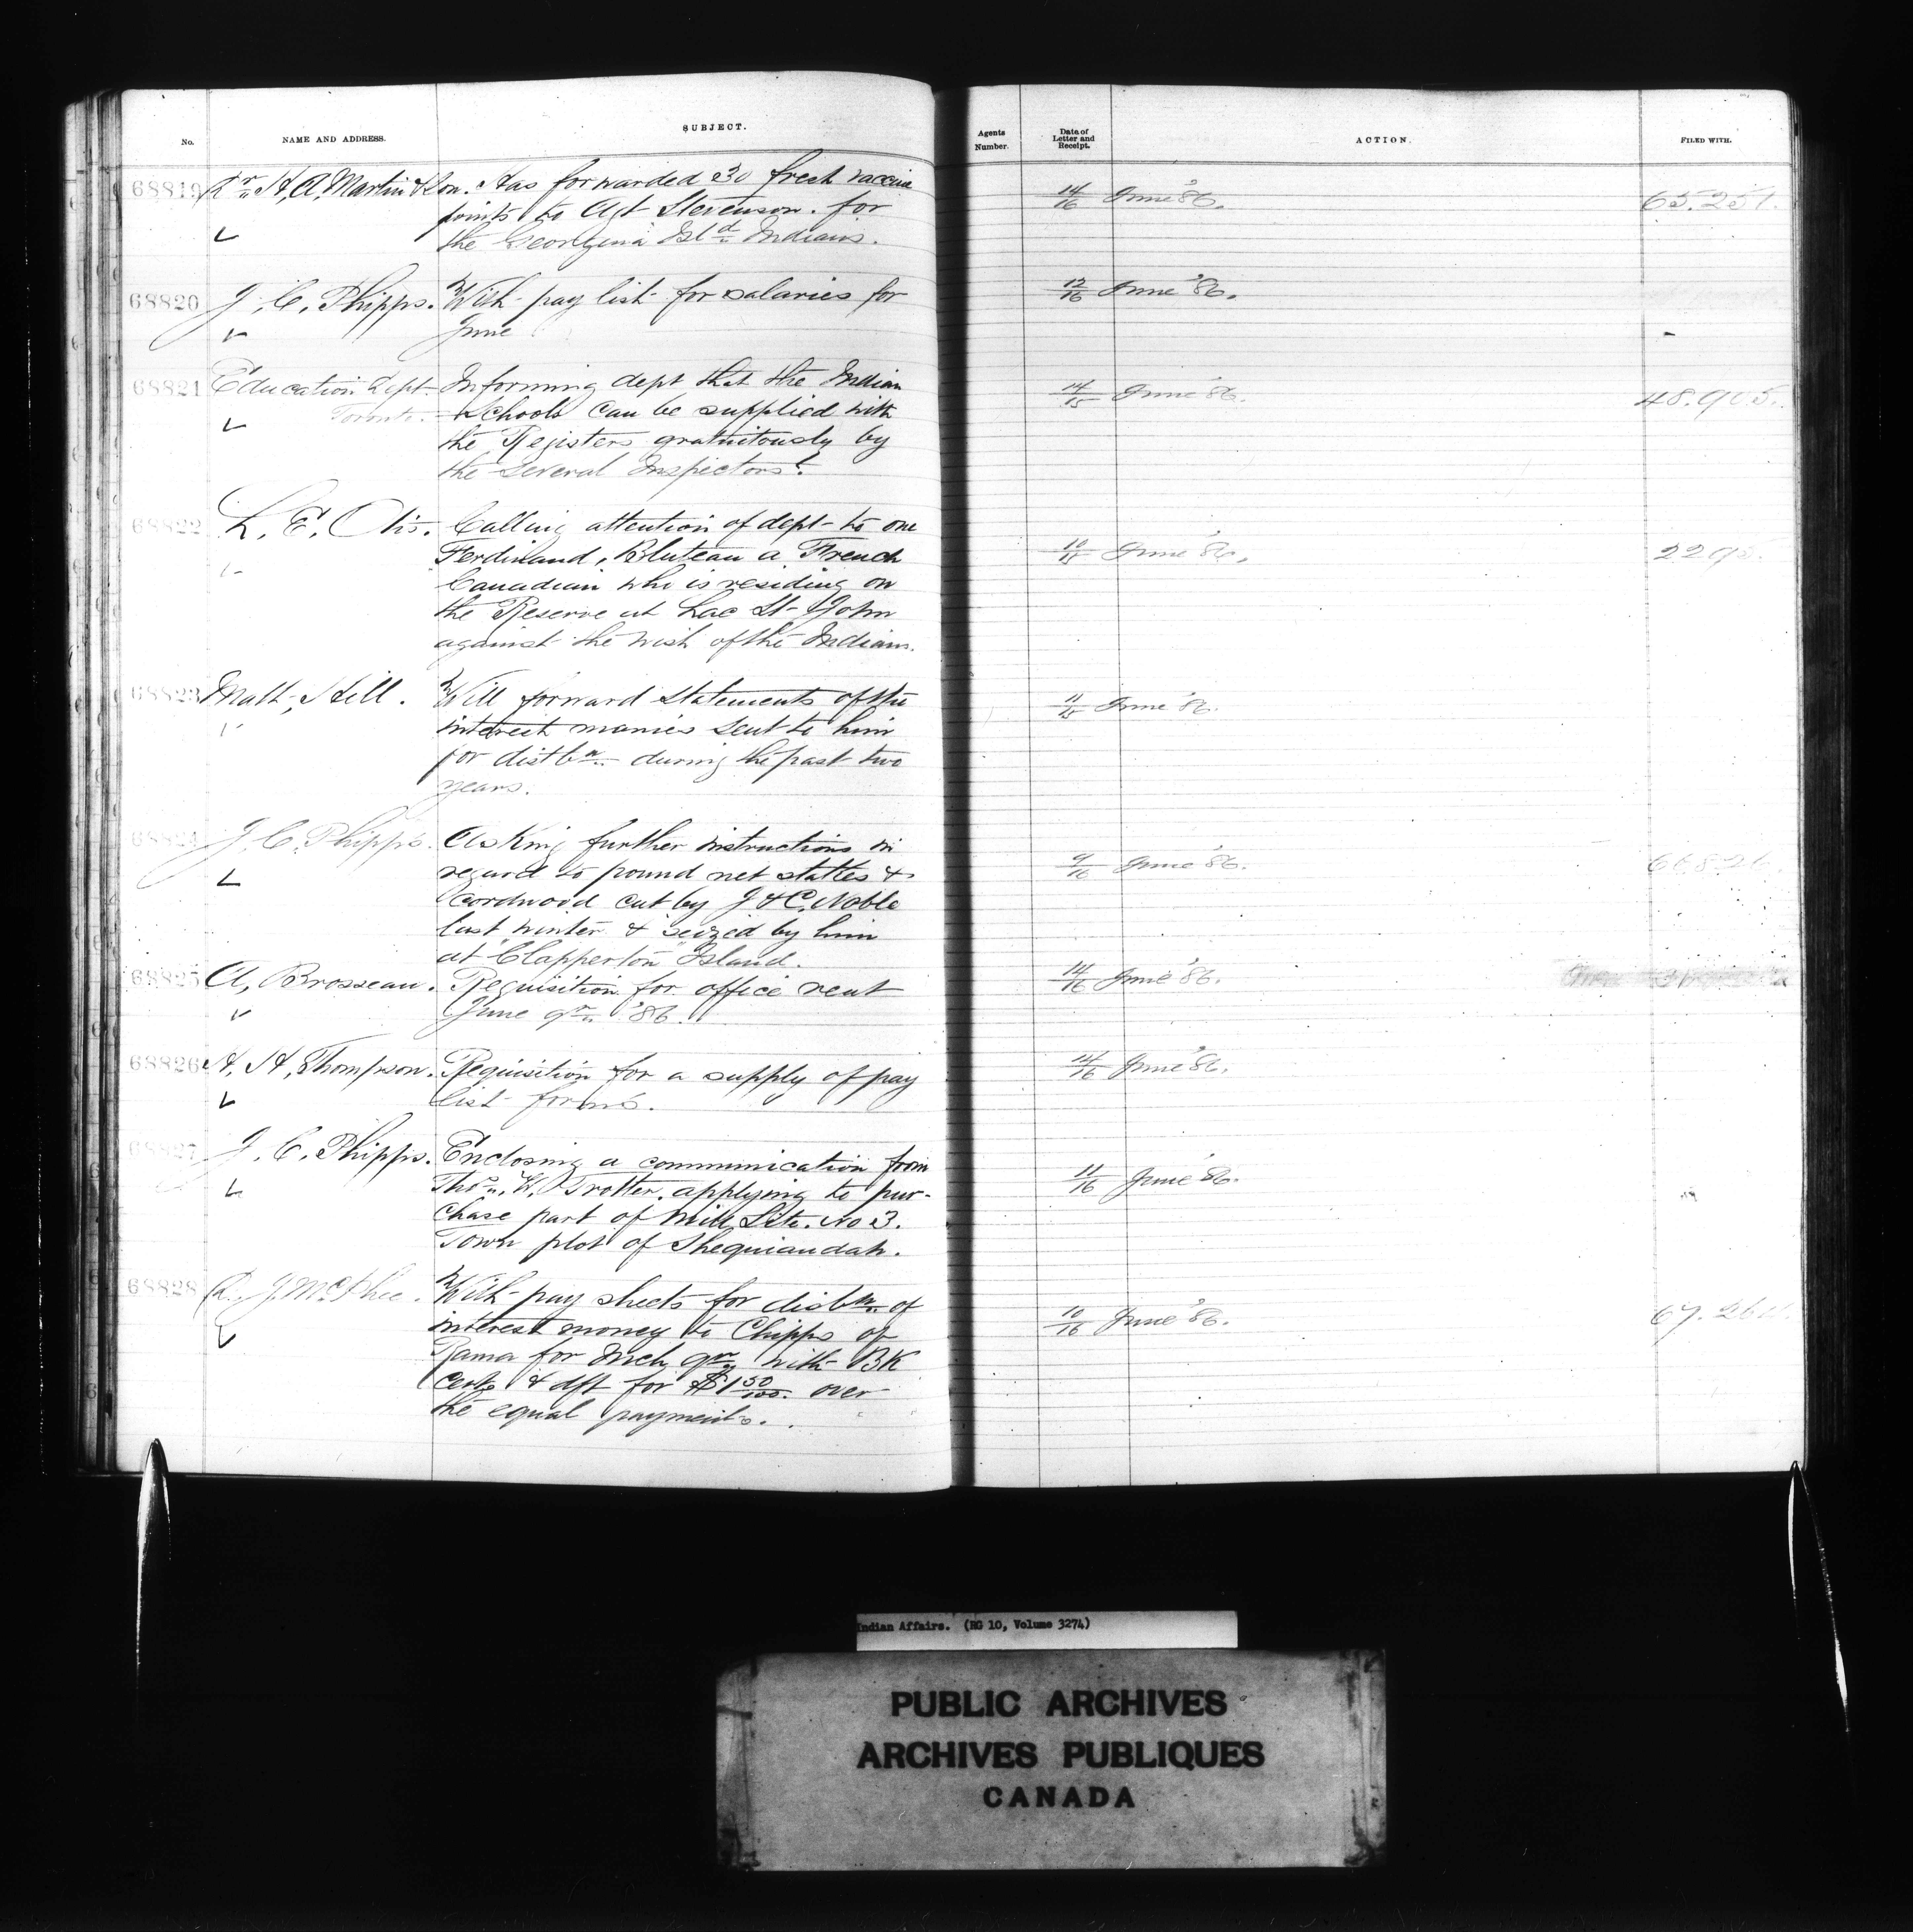 No. NAME AND ADDRESS. SUBJECT. Agents Number. Date of Letter and Receipt. ACTION. FILED WITH.
68819 Dr. H. A. Martin & Son. Has forwarded 30 fresh vaccine 14/16 June '86. 65.251.
points to Agt Stevenson. for
the Georgina Isld. Indians.
68820 J. C. Phipps. With pay list for salaries for 12/16 June '86.
June
68821 Education Dept. Informing dept that the Indian 14/15 June '86. 48.905.
Toronto. Schools can be supplied with
the Registers gratuitously by
the several Inspectors.
68822 L. E. Otis. Calling attention of dept to one
Ferdinand, Bluteau a French 10/15 June '86.
Canadian who is residing on
the Reserve at Lac St John
against the wish of the Indians.
68823 Matt, Hill. Will forward statements of the 11/15 June '86.
interest monies sent to him
for distbn. during the past two
years.
68824 J. C. Phipps. Asking further instructions in
regard to pound net stakes & 9/16 June '86.
Cordwood cut by J & C, Noble
last winter & seized by him
at "Clapperton" Island.
68825 A, Brosseau. Requisition for office rent 14/16 June '86.
June qr. '86.
68826 H, H, Thompson. Requisition for a supply of pay 14/16 June '86.
list forms.
68827 J. C. Phipps. Enclosing a communication from
Thos. W, Trotter. applying to pur- 11/16 June '86.
chase part of Mill Site. No 3.
Town plot of Sheguiandah.
68828 D. J. McPhee. With pay sheets for distbn. of
interest money to Chipps of 10/16 June '86.
Rama for Mch qr. with BK
certs & dft for $1 50/100. over
the equal payments.
Indian Affairs. (RG 10, Volume 3274)
PUBLIC ARCHIVES
ARCHIVES PUBLIQUES
CANADA